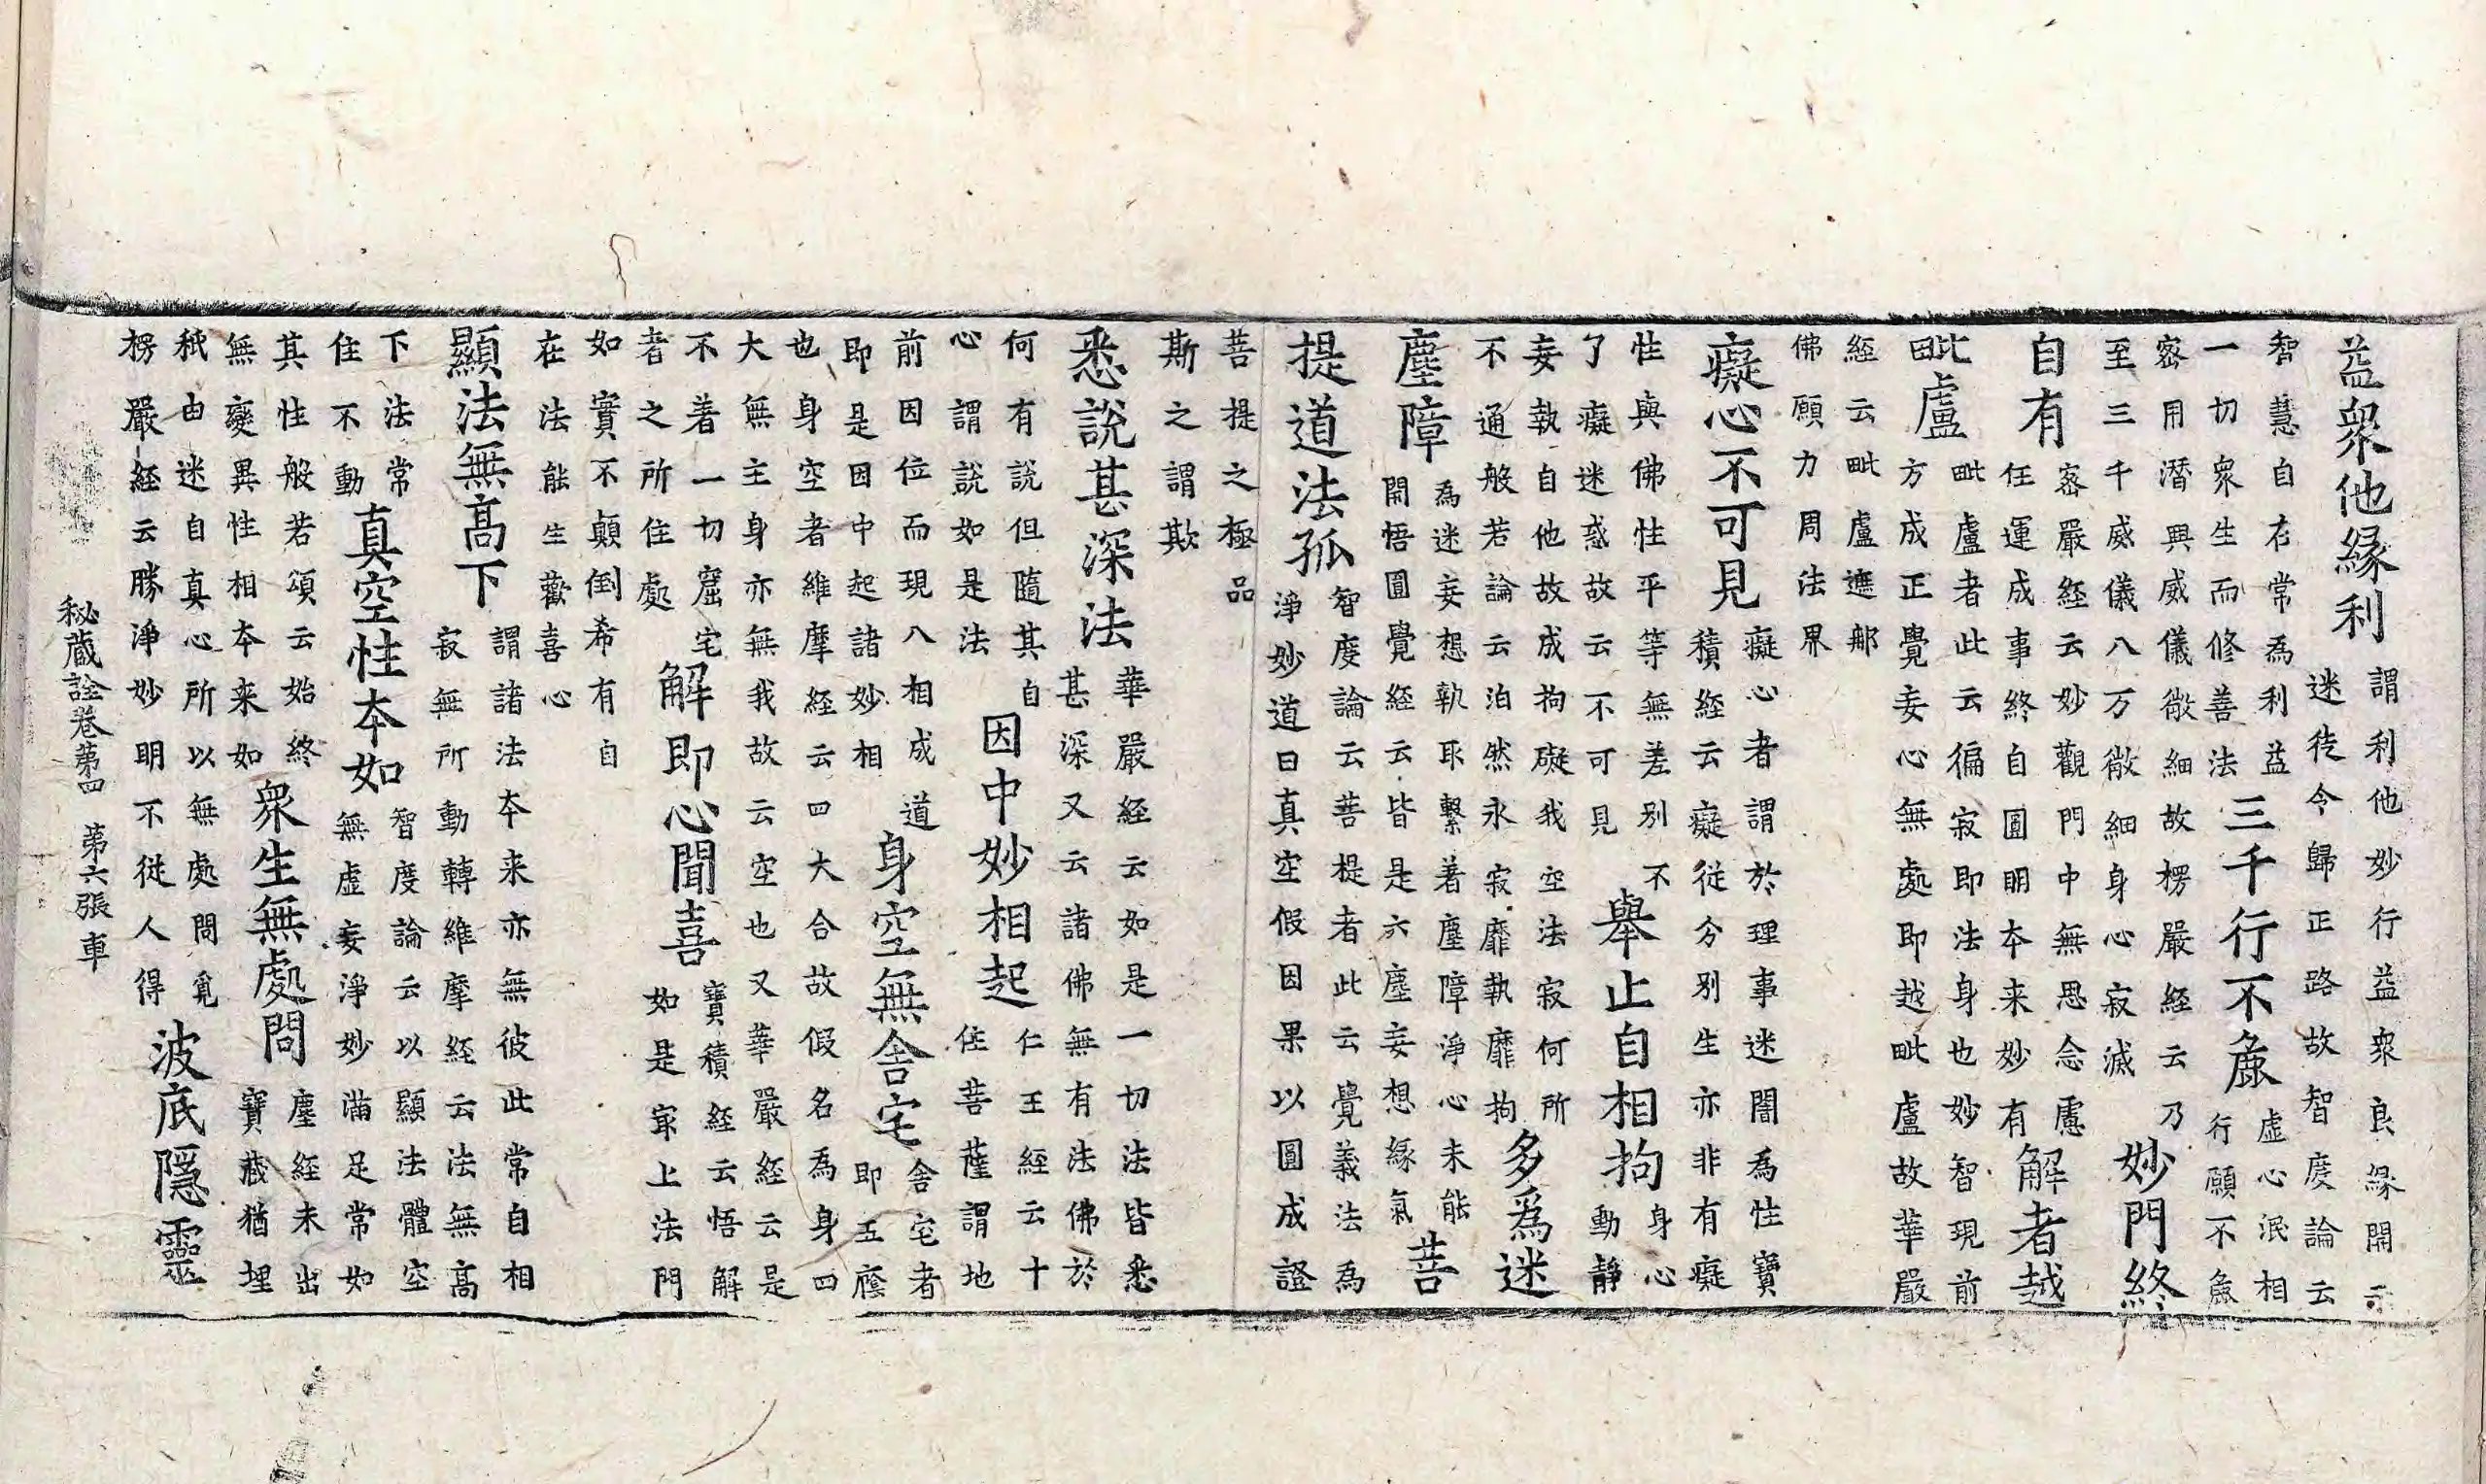 益衆他縁利
謂利他妙行益衆良縁開示
迷徒令歸正路故智度論云
智慧自在常為利益
一切衆生而修善法
三千行不麁
虛心泯相
行願不麁
密用潜興威儀微細故楞嚴経云乃
至三千威儀八万微細身心寂滅
妙門終
自有
密嚴経云妙觀門中無思念慮
任運成事終自圓明本来妙有
解者越
毗盧
毗盧者此云徧寂即法身也妙智現前
方成正覺妄心無處即越毗盧故華嚴
経云毗盧遮那
佛願力周法界
癡心不可見
癡心者謂於理事迷闇為性寶
積経云癡從分別生亦非有癡
性與佛性平等無差別不
了癡迷惑故云不可見
舉止自相拘
身心
動静
妄執自他故成拘礙我空法寂何所
不通般若論云泊然永寂靡執靡拘
多爲迷
塵障
為迷妄想執取繫著塵障淨心未能
開悟圓覺経云皆是六塵妄想緣氣
菩
提道法孤
智度論云菩提者此云覺義法為
淨妙道曰真空假因果以圓成證
菩提之極品
斯之謂歟
悉說甚深法
華嚴経云如是一切法皆悉
甚深又云諸佛無有法佛於
何有說但隨其自
心謂說如是法
因中妙相起
仁王経云十
住菩薩謂地
前因位而現八相成道
即是因中起諸妙相
身空無舍宅
舍宅者
即五廕
也身空者維摩経云四大合故假名為身四
大無主身亦無我故云空也又華嚴経云是
不著一切窟宅
者之所住處
解即心聞喜
寶積経云悟解
如是㝡上法門
如實不顛倒希有自
在法能生歡喜心
顯法無髙下
謂諸法本来亦無彼此常自相
寂無所動轉維摩経云法無髙
下法常
住不動
真空性本如
智度論云以顯法體空
無虛妄淨妙滿足常如
其性般若頌云始終
無變異性相本来如
衆生無處問
塵経未出
寶蔵猶埋
秖由迷自真心所以無處問覓
楞嚴経云勝淨妙明不從人得
波底隱靈
秘蔵詮卷第四 第六張 車